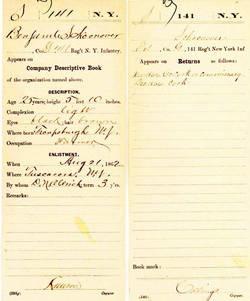 S 141 N.Y.
Benjamin Schoonover
Co. D, 141 Reg't N. Y. Infantry.
Appears on
Company Descriptive Book
of the organization named above.
DESCRIPTION.
Age 25 years; height 5 feet 10 inches.
Complexion light
Eyes black; hair brown
Where born Troupsburgh N.Y.
Occupation Farmer
ENLISTMENT.
When Aug 21, 1862
Where Tuscarora, N.Y.
By whom term 3 y'rs.
Remarks:
Copyist.
S 141 N.Y.
Schoonover
Co. 141 Reg't New York Inf
Appears on
Returns as follows:
Book mark:
Copyist.